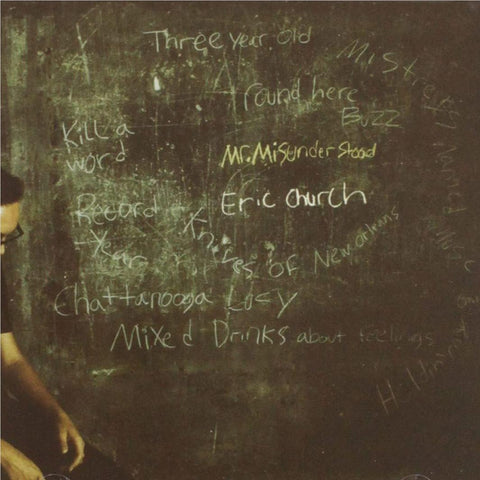 Three year old
Mistress Named Music
Round here
Buzz
Kill a
word
Mr. Misunderstood
Record
Year
Eric Church
Knives of New Orleans
Chattanooga Lucy
Mixed Drinks about feelings
Holdin my own